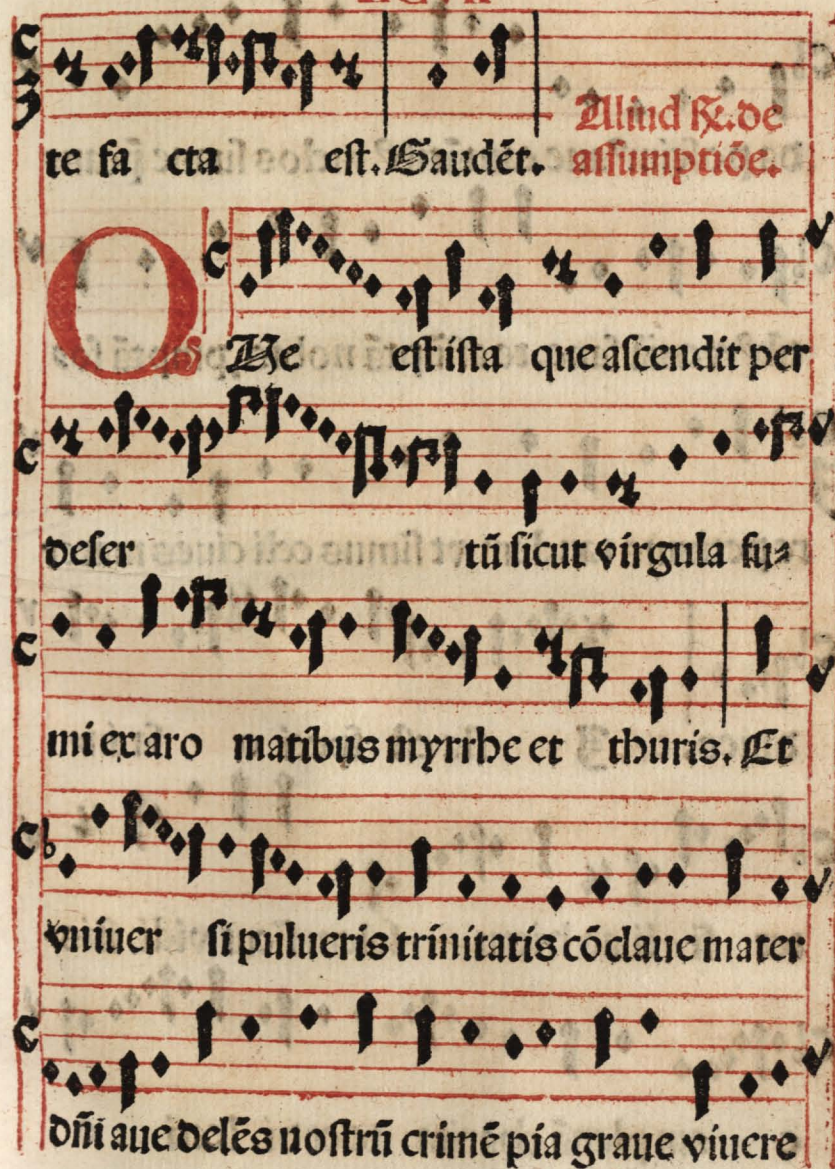 te fa cta est. Gaudēt.
Aliud ℟. de
assumptiōe.
QUe est ista que ascendit per
deser tū sicut virgula fu⸗
mi ex aro matibus myrrhe et thuris. Et
vniuer si pulueris trinitatis cōclaue mater
dn̄i aue delēs nostrū crimē pia graue viuere